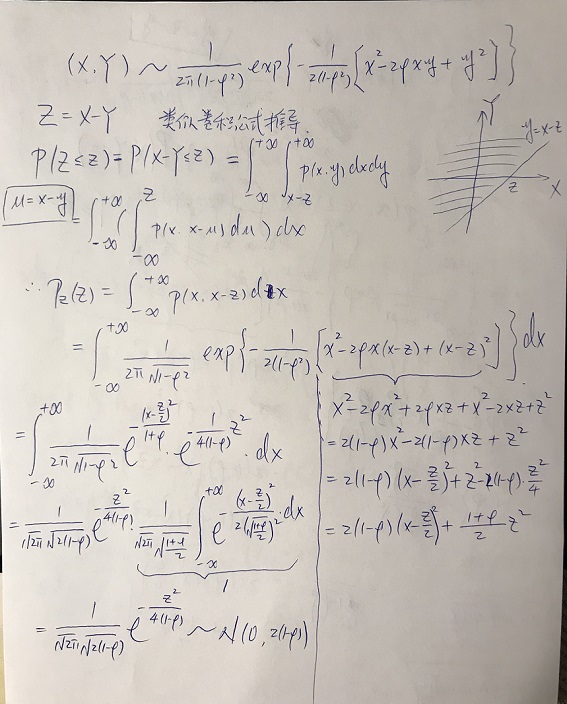 (X,Y) ~ 1/(2π(1-ρ²)) exp{-1/(2(1-ρ²)) [x²-2ρxy+y²]}
Z=X-Y 类似卷积公式推导
P(Z≤z)=P(X-Y≤z) = ∫_{-∞}^{+∞} ∫_{x-z}^{+∞} p(x,y)dxdy
Y
y=x-z
z
X
u=x-y = ∫_{-∞}^{+∞} (∫_{-∞}^{z} p(x, x-u)du) dx
∴ P_Z(z) = ∫_{-∞}^{+∞} p(x, x-z)dx
= ∫_{-∞}^{+∞} 1/(2π√(1-ρ²)) exp{-1/(2(1-ρ²)) [x²-2ρx(x-z)+(x-z)²]}dx
= ∫_{-∞}^{+∞} 1/(2π√(1-ρ²)) e^{-(x-z/2)²/(1+ρ)} · e^{-1/(4(1-ρ)) z²} · dx
= 1/(√2π √2(1-ρ)) e^{-z²/(4(1-ρ))} · 1/(√2π √((1+ρ)/2)) ∫_{-∞}^{+∞} e^{-(x-z/2)²/(2(√((1+ρ)/2))²)} · dx
1
= 1/(√2π √2(1-ρ)) e^{-z²/(4(1-ρ))} ~ N(0, 2(1-ρ))
x²-2ρx²+2ρxz+x²-2xz+z²
= 2(1-ρ)x²-2(1-ρ)xz+z²
= 2(1-ρ)(x-z/2)²+z²-2(1-ρ)·z²/4
= 2(1-ρ)(x-z/2)²+(1+ρ)/2 z²